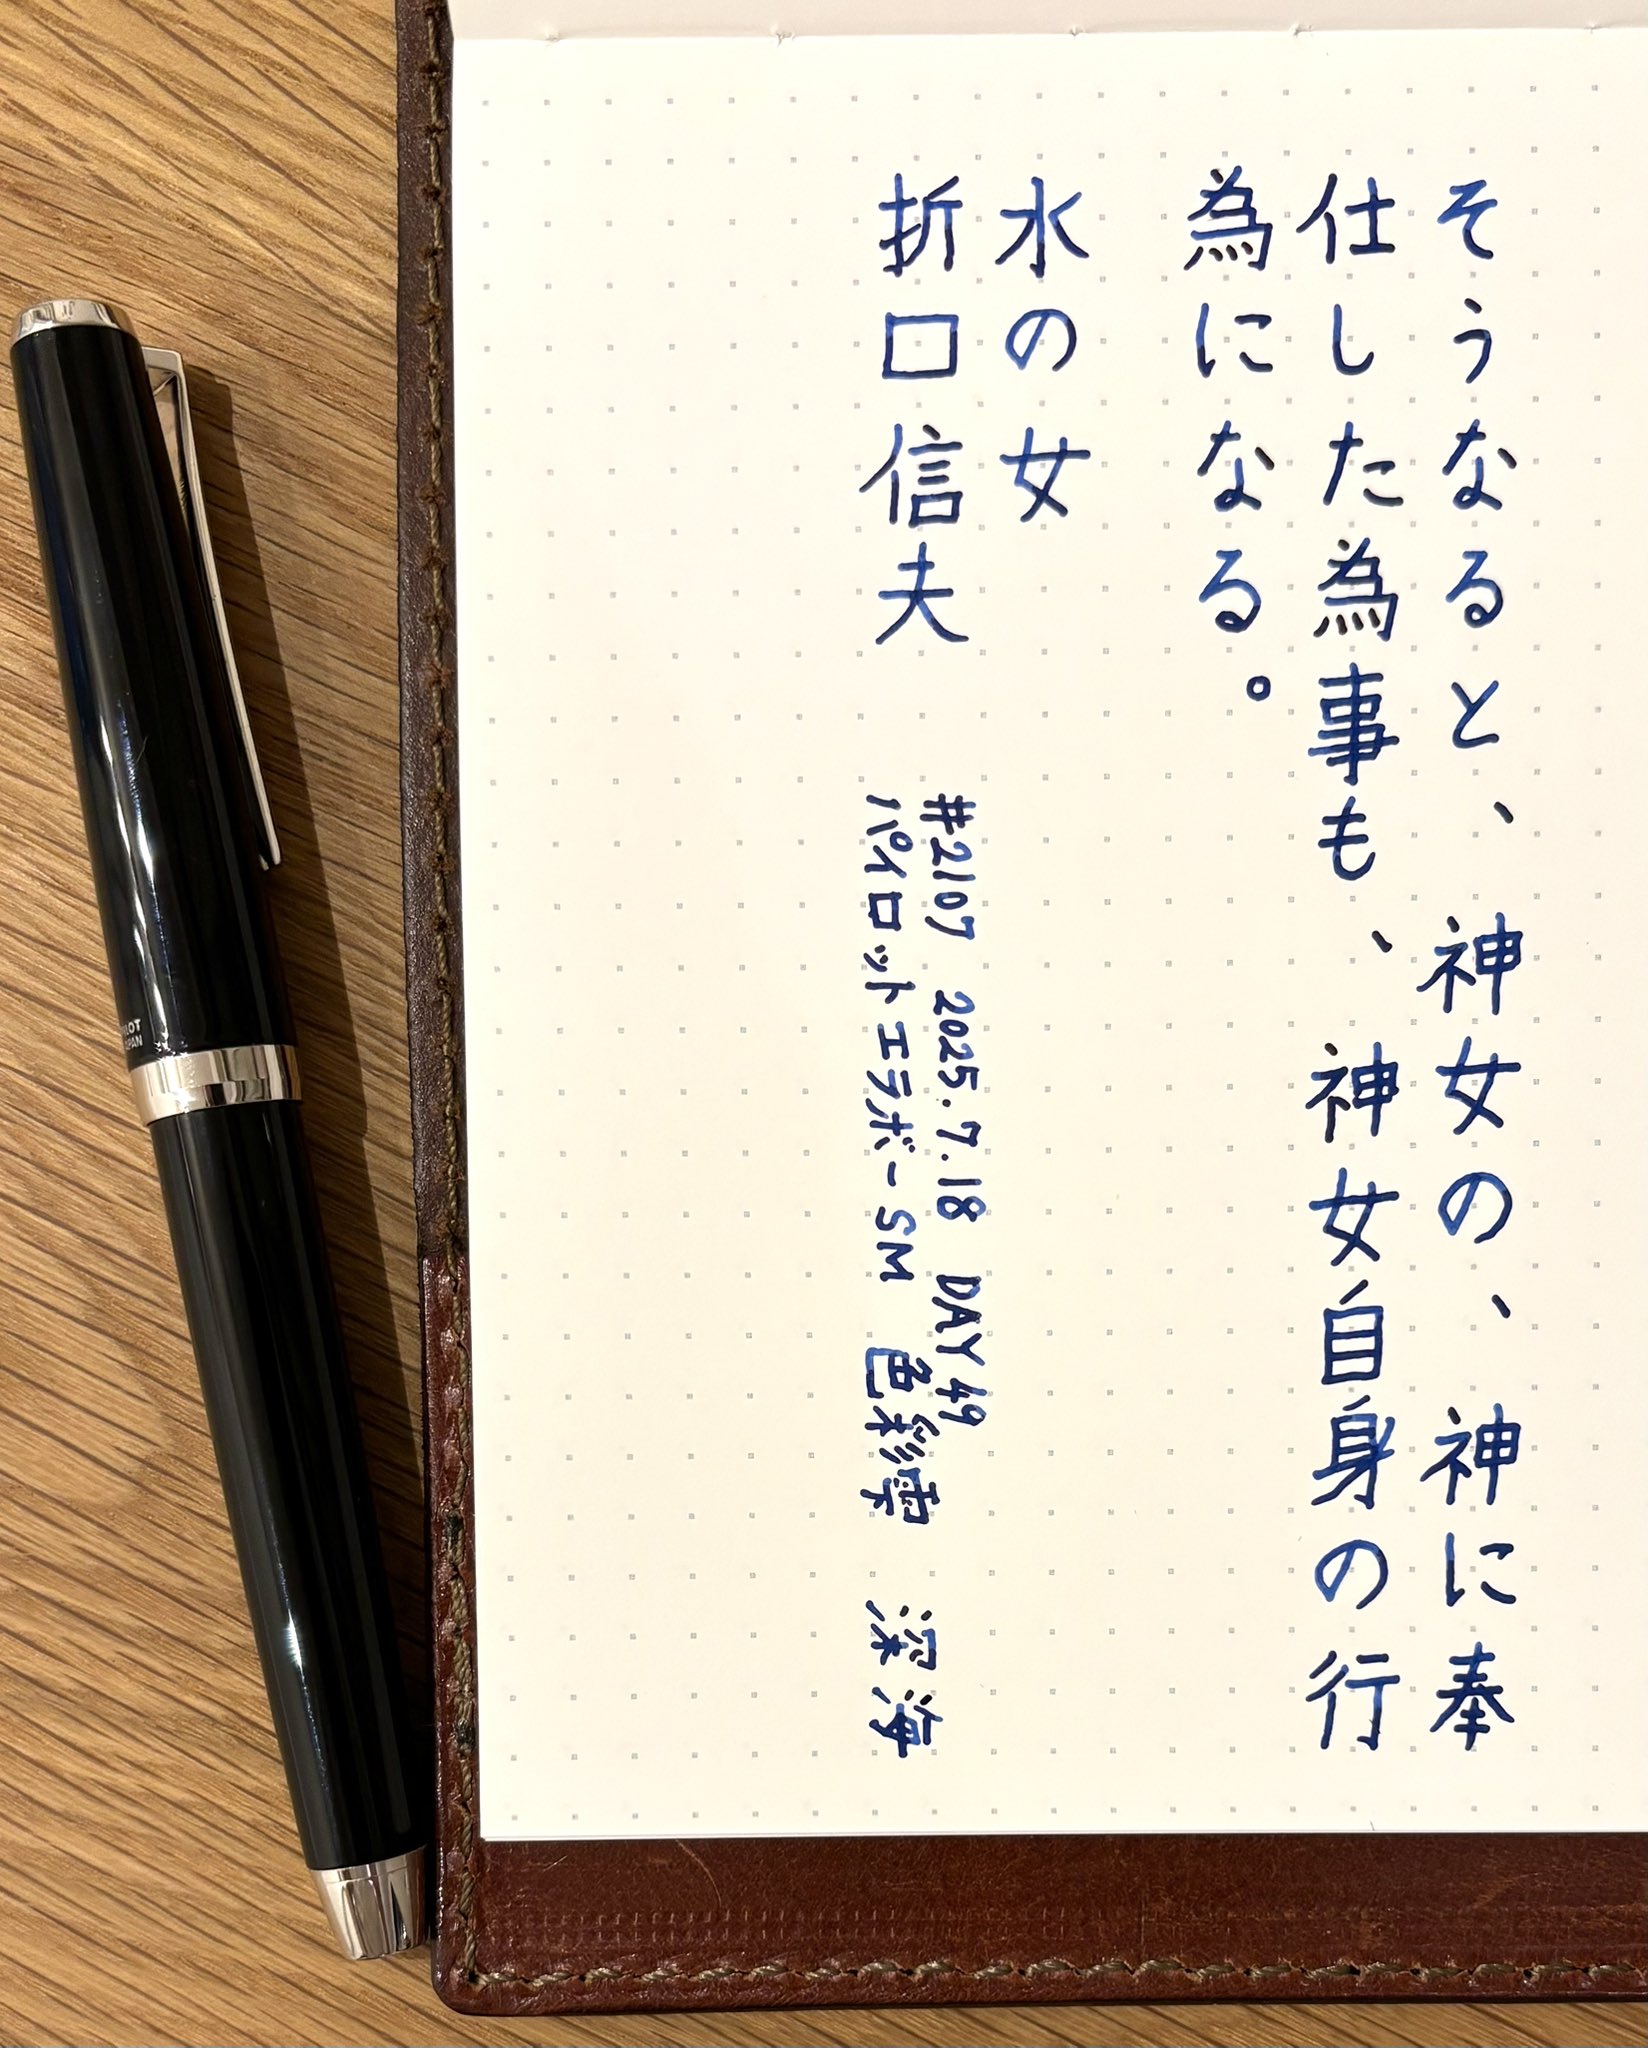 そうなると、神女の、神に奉
仕した為事も、神女自身の行
為になる。
水の女
折口信夫
#2107 2025.7.18 DAY49
パイロットエラボーSM 色彩雫 深海